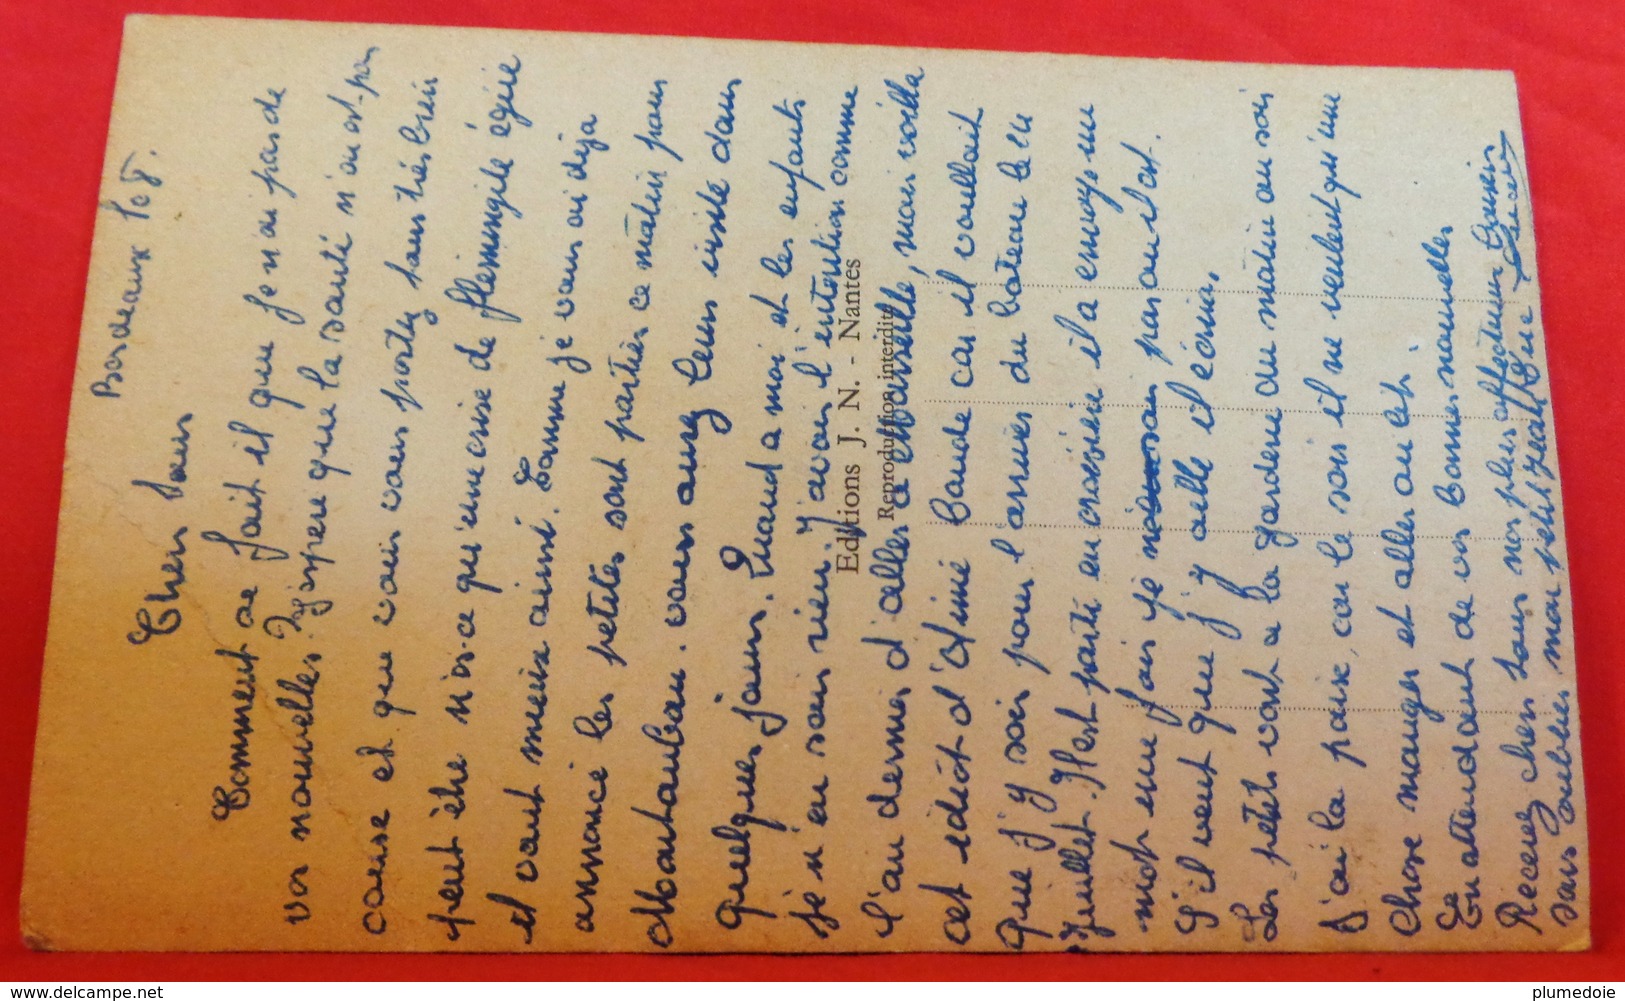 Bordeaux 10 8.
Chers tous
Comment se fait il que je n'ai pas de
vos nouvelles. J'éspere que la santé n'en est pas
cause et que vous vous portez tous très bien
peut être n'es-ce qu'une crise de flemmigite égüe
et vaut mieux ainsi. Comme je vous ai déja
annoncé les petites sont parties ce matin pour
Montauban. vous aurez leur visite dans
quelques jours. Quand a moi et les enfants
je n'en sais rien. J'avais l'intention comme
l'an dernier d'aller a Marseille, mais voilla
cet idiot d'Aimé boude car il voullait
que j'y sois pour l'arrivée du bateau le 14
Juillet. Il est parti en croisière il a envoyé un
mot une fois je ne sais pas ou il est.
S'il veut que j'y aille il écrira.
Les petit vont a la garderie du matin au soir
J'ai la paix, car le soir il ne veulent qu'une
chose manger et aller au lit.
En attendant de vos bonnes nouvelles
Recevez chers tous nos plus affectueux Baisers
sans oublier mon petit
Editions J. N. - Nantes
Reproduction interdite
plumedoie
www.delcampe.net